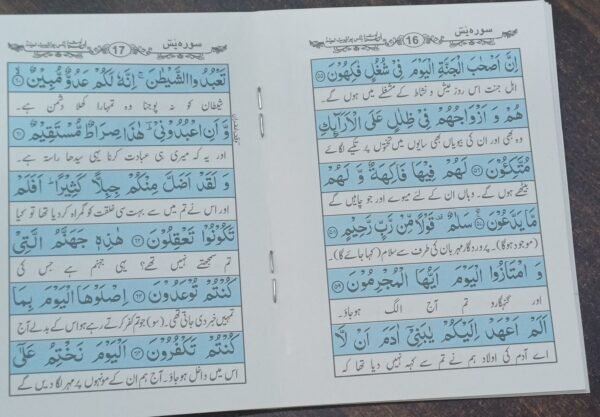 سورہ یٰسٓ
16
اِنَّ اَصْحٰبَ الْجَنَّةِ الْيَوْمَ فِيْ شُغُلٍ فٰكِهُوْنَ ۵۵
اہل جنت اس روز عیش و نشاط کے مشغلے میں ہوں گے۔
هُمْ وَ اَزْوَاجُهُمْ فِيْ ظِلٰلٍ عَلَى الْاَرَآئِكِ
وہ بھی اور ان کی بیویاں بھی سایوں میں تختوں پر تکیے لگائے
مُتَّكِـُٔوْنَ ۵۶ لَهُمْ فِيْهَا فَاكِهَةٌ وَّ لَهُمْ
بیٹھے ہوں گے۔ وہاں ان کے لئے میوے اور جو چاہیں گے
مَّا يَدَّعُوْنَ ۵۷ سَلٰمٌ قَوْلًا مِّنْ رَّبٍّ رَّحِيْمٍ ۵۸
(موجود ہوگا)۔ پروردگار مہربان کی طرف سے سلام (کہا جائے گا)۔
وَ امْتَازُوا الْيَوْمَ اَيُّهَا الْمُجْرِمُوْنَ ۵۹
اور گنہگارو تم آج الگ ہوجاؤ۔
اَلَمْ اَعْهَدْ اِلَيْكُمْ يٰبَنِيْٓ اٰدَمَ اَنْ لَّا
اے آدم کی اولاد ہم نے تم سے کہہ نہیں دیا تھا کہ
سورہ یٰسٓ
17
تَعْبُدُوا الشَّيْطٰنَ اِنَّهٗ لَكُمْ عَدُوٌّ مُّبِيْنٌ ۶۰
شیطان کو نہ پوجنا وہ تمہارا کھلا دشمن ہے۔
وَّ اَنِ اعْبُدُوْنِيْ هٰذَا صِرَاطٌ مُّسْتَقِيْمٌ ۶۱
اور یہ کہ میری ہی عبادت کرنا یہی سیدھا راستہ ہے۔
وَ لَقَدْ اَضَلَّ مِنْكُمْ جِبِلًّا كَثِيْرًا اَفَلَمْ
اور اس نے تم میں سے بہت سی خلقت کو گمراہ کردیا تھا تو کیا
تَكُوْنُوْا تَعْقِلُوْنَ ۶۲ هٰذِهٖ جَهَنَّمُ الَّتِيْ
تم سمجھتے نہیں تھے؟ یہی جہنم ہے جس کی
كُنْتُمْ تُوْعَدُوْنَ ۶۳ اِصْلَوْهَا الْيَوْمَ بِمَا
تمہیں خبر دی جاتی تھی۔ (سو) جو تم کفر کرتے رہے ہو اس کے بدلے آج
كُنْتُمْ تَكْفُرُوْنَ ۶۴ اَلْيَوْمَ نَخْتِمُ عَلٰٓى
اس میں داخل ہوجاؤ۔ آج ہم ان کے مونہوں پر مہر لگا دیں گے